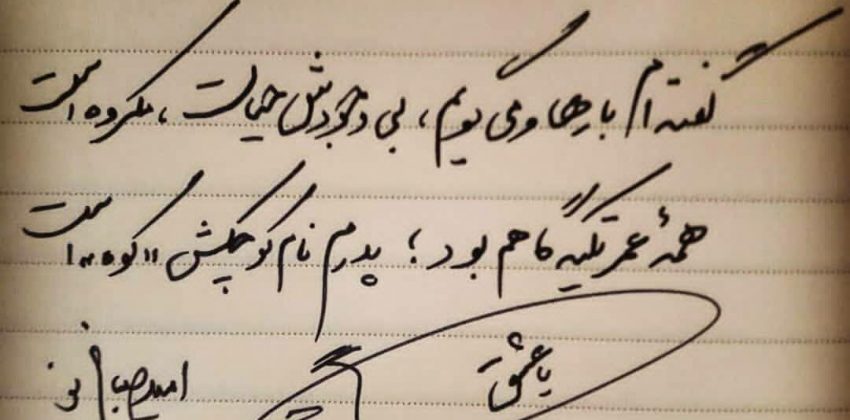 گفته ام بارها و می گویم، بی وجودش حیات، مکروه است
همهٔ عمر تکیه گاهم بود؛ پدرم نام کوچکش "کوه" است
یا عشق
امید صباغ نو